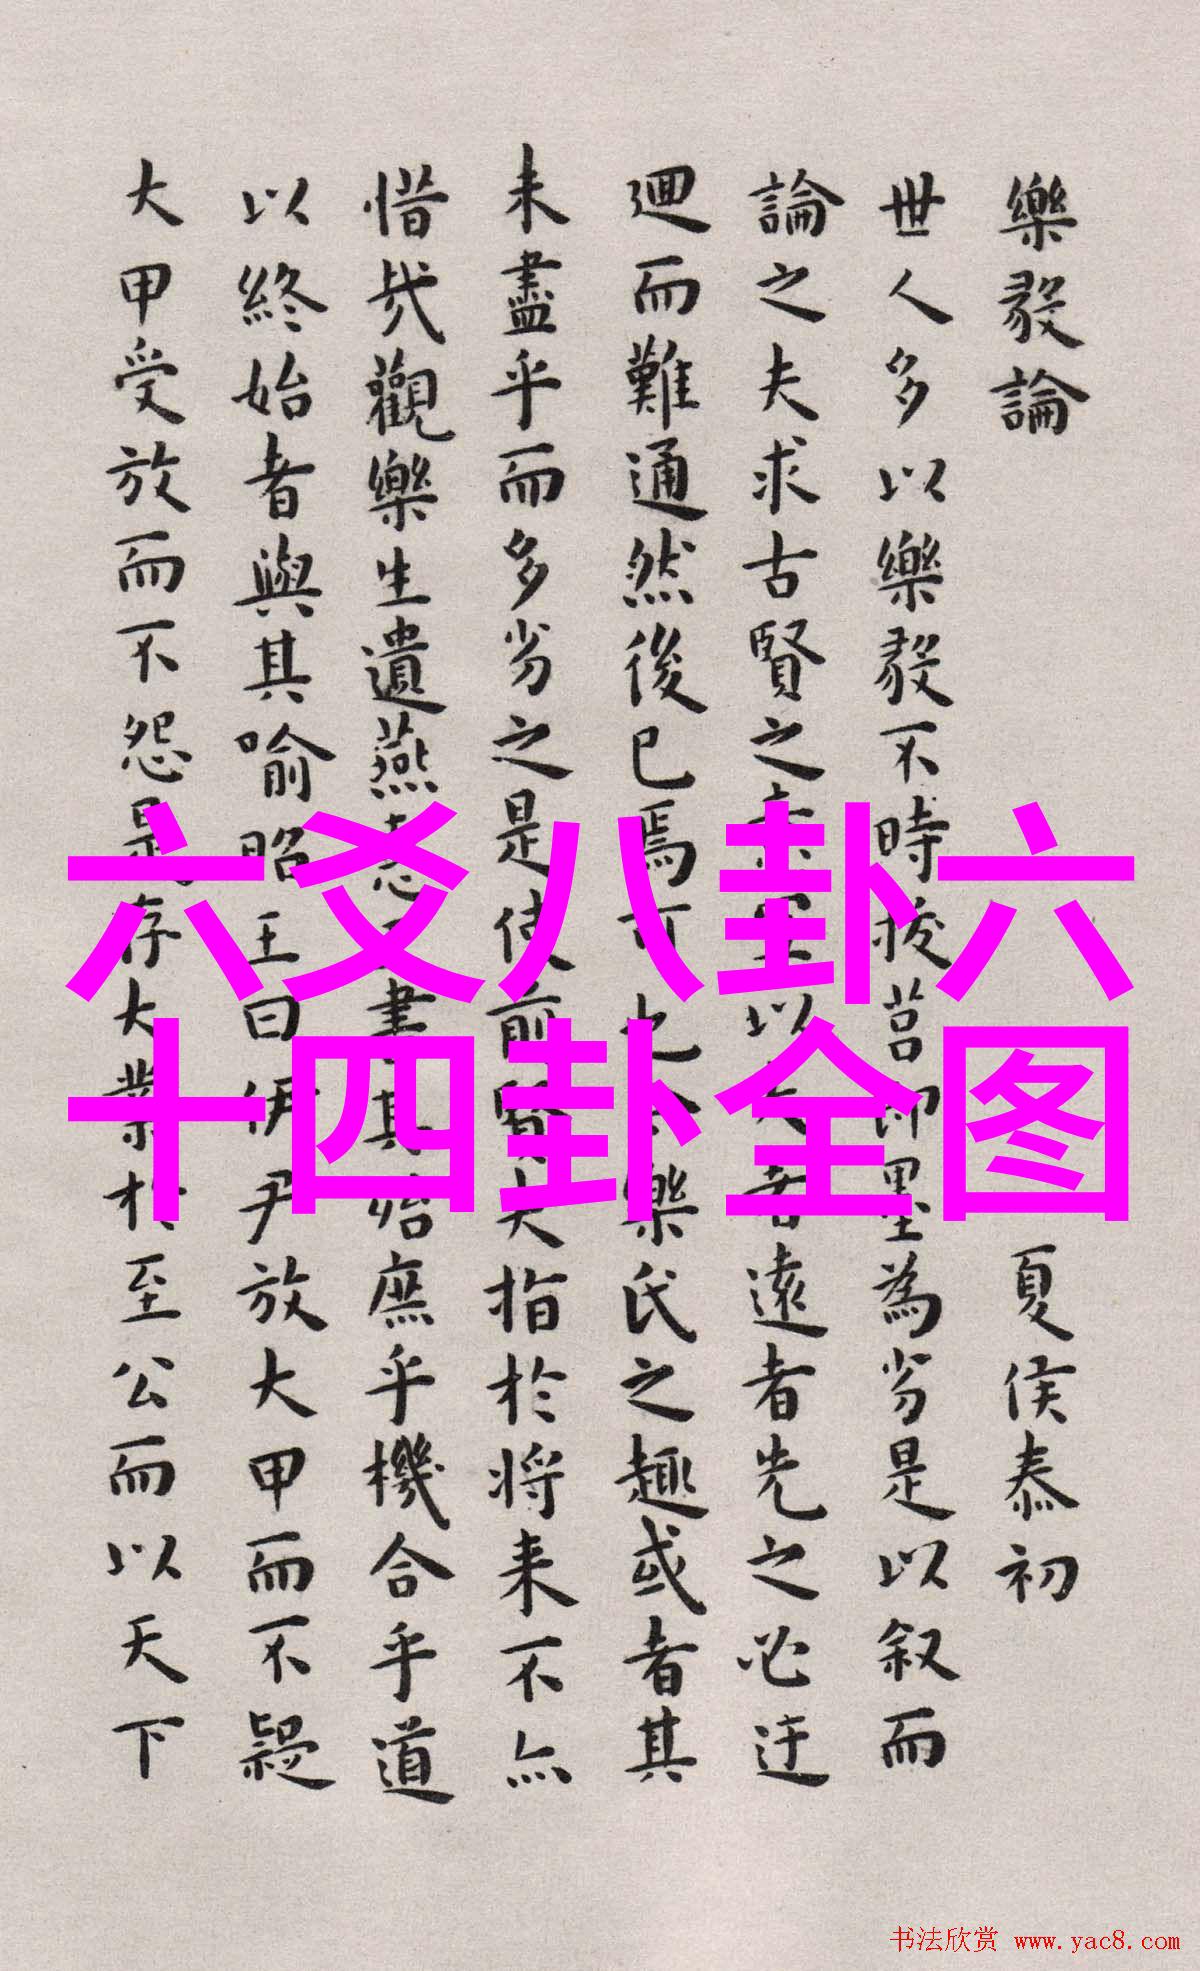 樂毅論
夏侯泰初
世人多以樂毅不時拔莒即墨為劣是以叙而
論之夫求古賢之以大者遠者先之必迂
迴而難通然後已焉可也樂氏之趣或者其
未盡乎而多劣之是使前賢失指於將来不亦
惜哉觀樂生遺燕惠書其殆庶乎機合乎道
以終始者與其喻昭王曰伊尹放大甲而不疑
大甲受放而不怨是存大業於至公而以天下
六爻八卦六
十四卦全图
书法欣赏 www.yac8.com